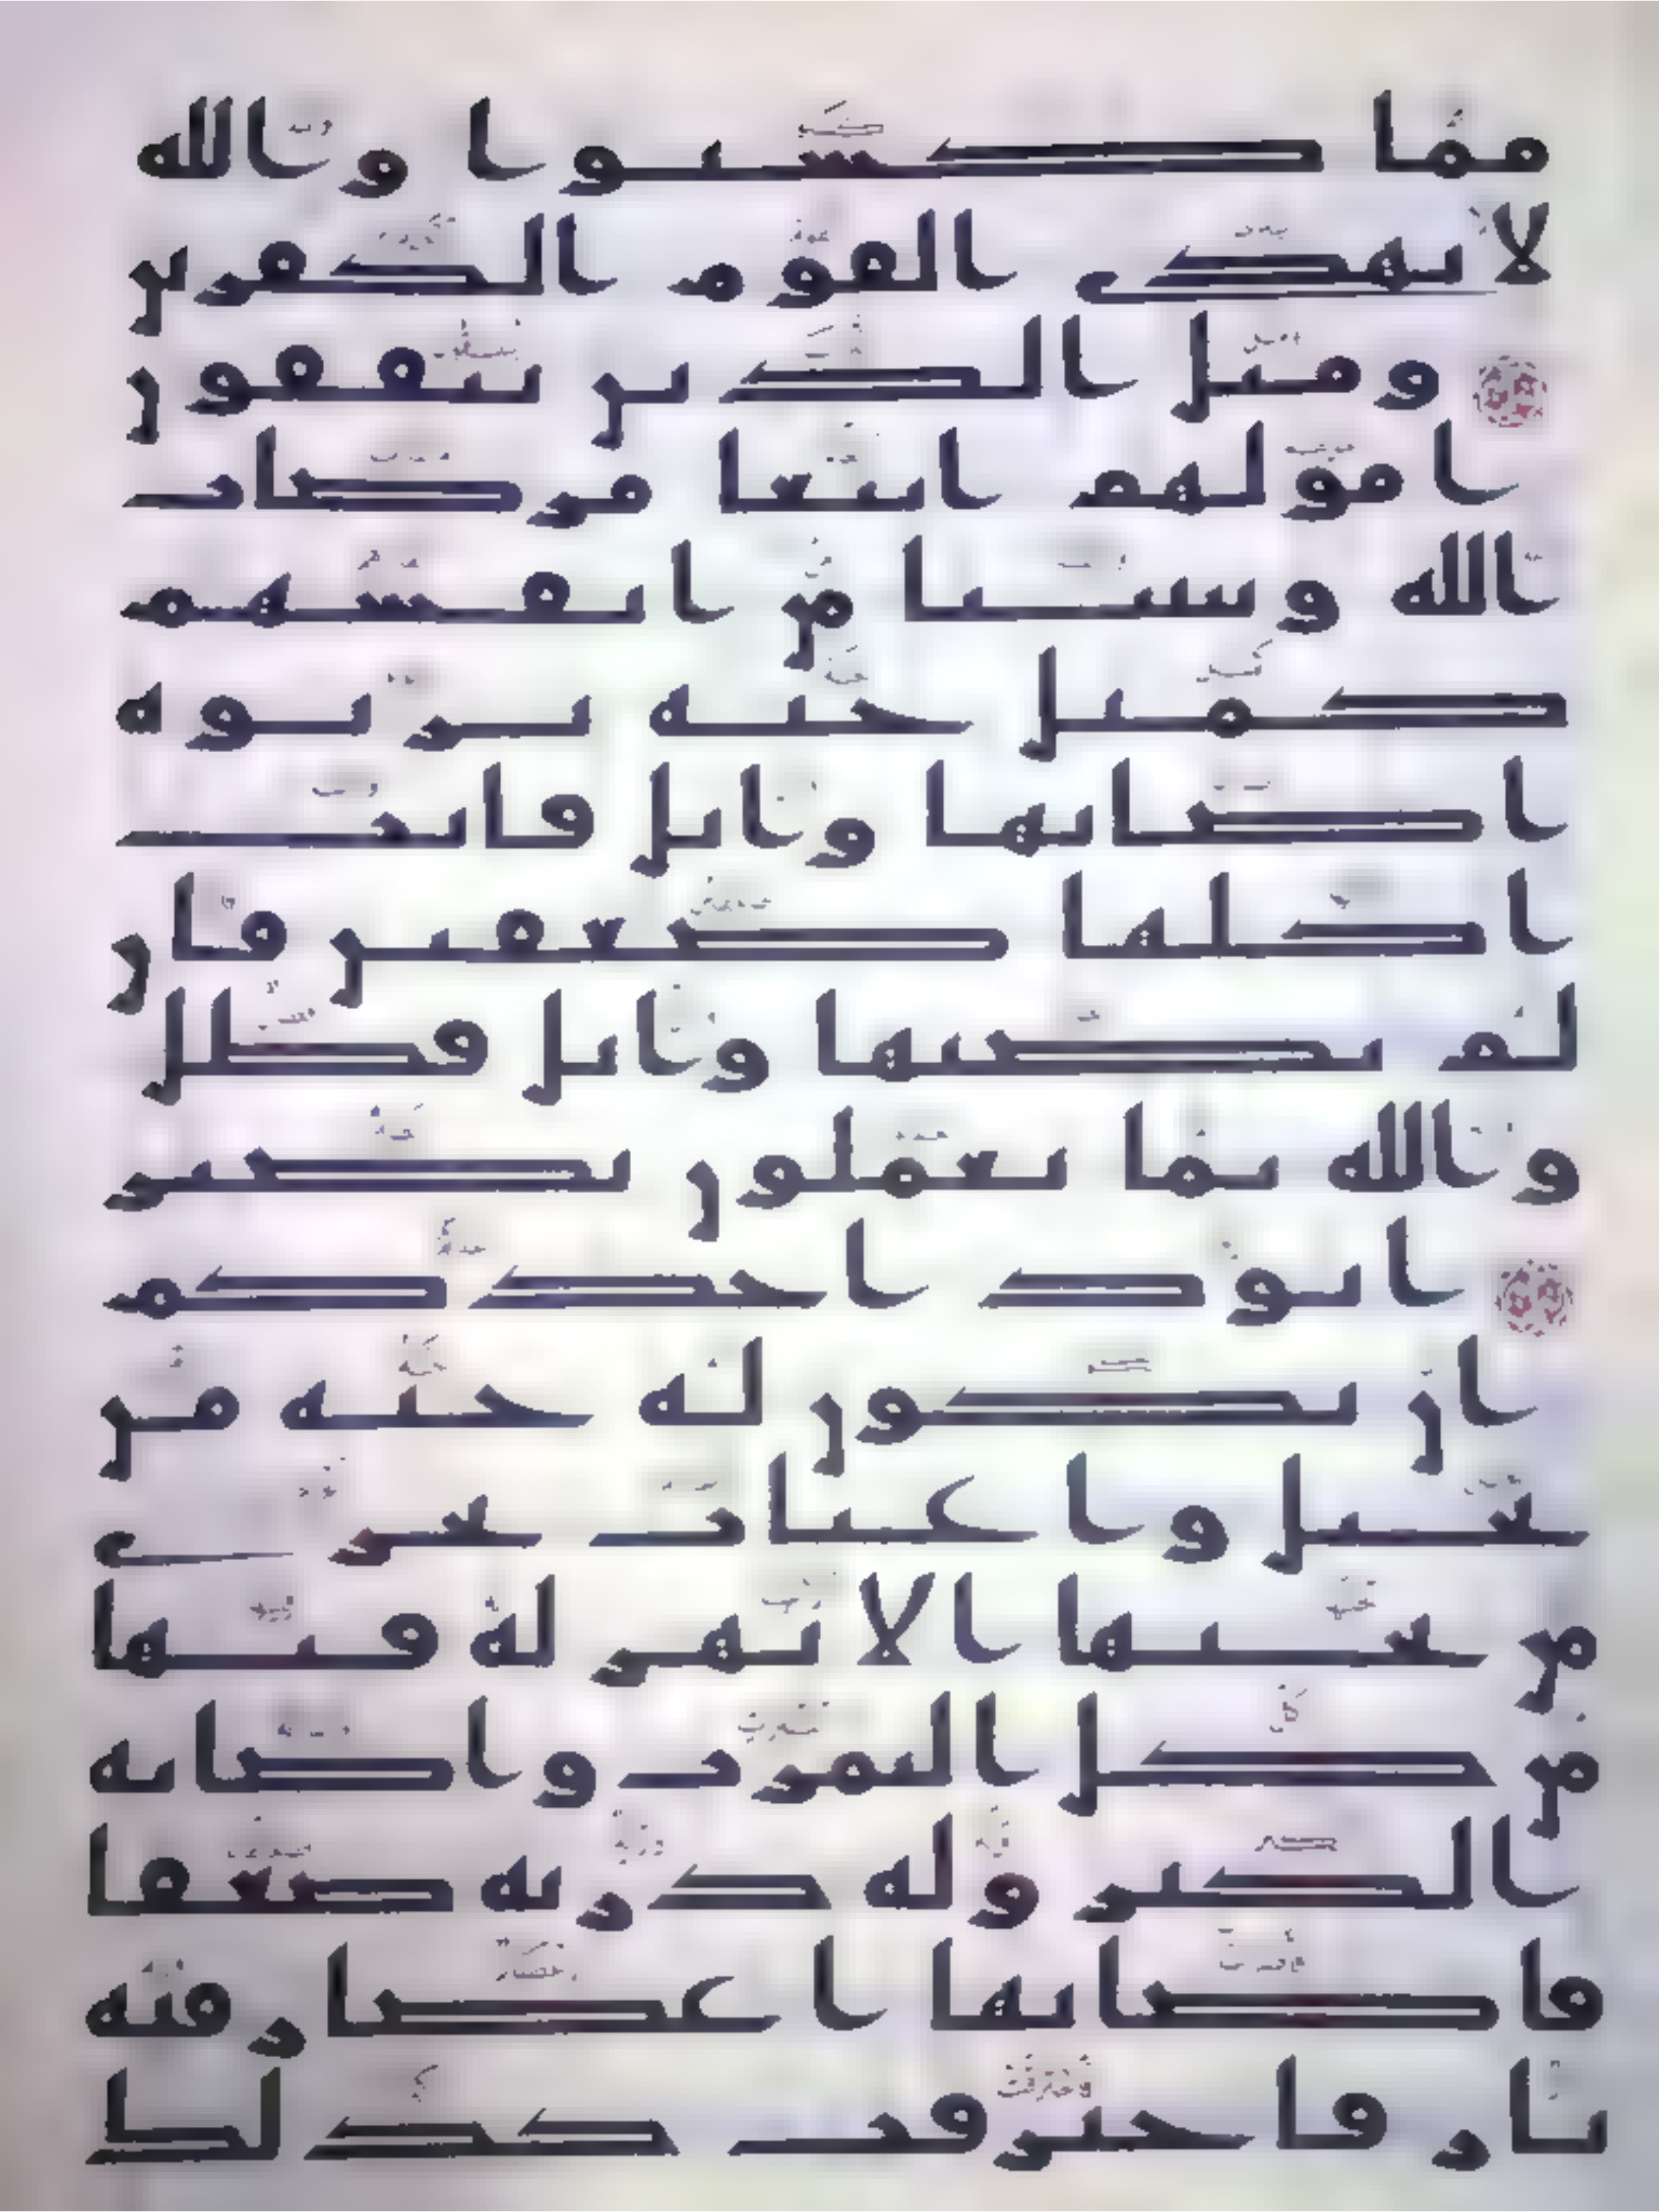 مما كسبوا والله
لا يهدي القوم الكفرين
ومثل الذين ينفقون
امولهم ابتغا مرضات
الله وتثبيتا من انفسهم
كمثل جنة بربوة
اصابها وابل فاتت
اكلها ضعفين فان
لم يصبها وابل فطل
والله بما تعملون بصير
ايود احدكم
ان تكون له جنة من
نخيل واعناب تجري
من تحتها الانهر له فيها
من كل الثمرت واصابه
الكبر وله ذرية ضعفا
فاصابها اعصار فيه
نار فاحترقت كذلك